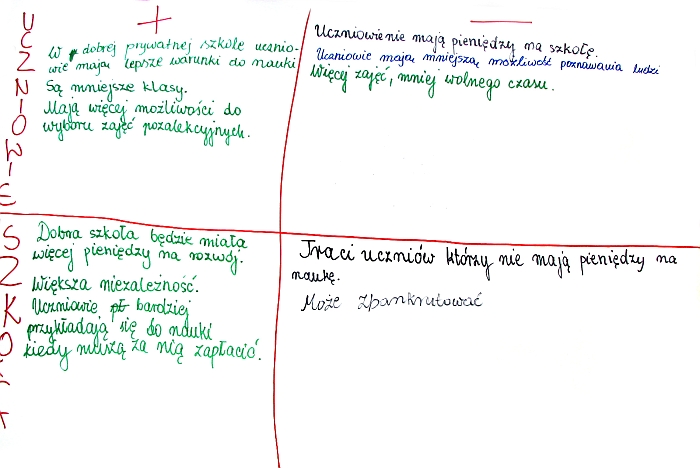 UCZNIOWIE
+
W dobrej prywatnej szkole ucznio-
wie mają lepsze warunki do nauki
Są mniejsze klasy.
Mają więcej możliwości do
wyboru zajęć pozalekcyjnych.
—
Uczniowie nie mają pieniędzy na szkołę.
Uczniowie mają mniejszą możliwość poznawania ludzi
Więcej zajęć, mniej wolnego czasu.
SZKOŁA
Dobra szkoła będzie miała
więcej pieniędzy na rozwój.
Większa niezależność.
Uczniowie bardziej
przykładają się do nauki
kiedy muszą za nią zapłacić.
Traci uczniów którzy nie mają pieniędzy na
naukę.
Może zbankrutować